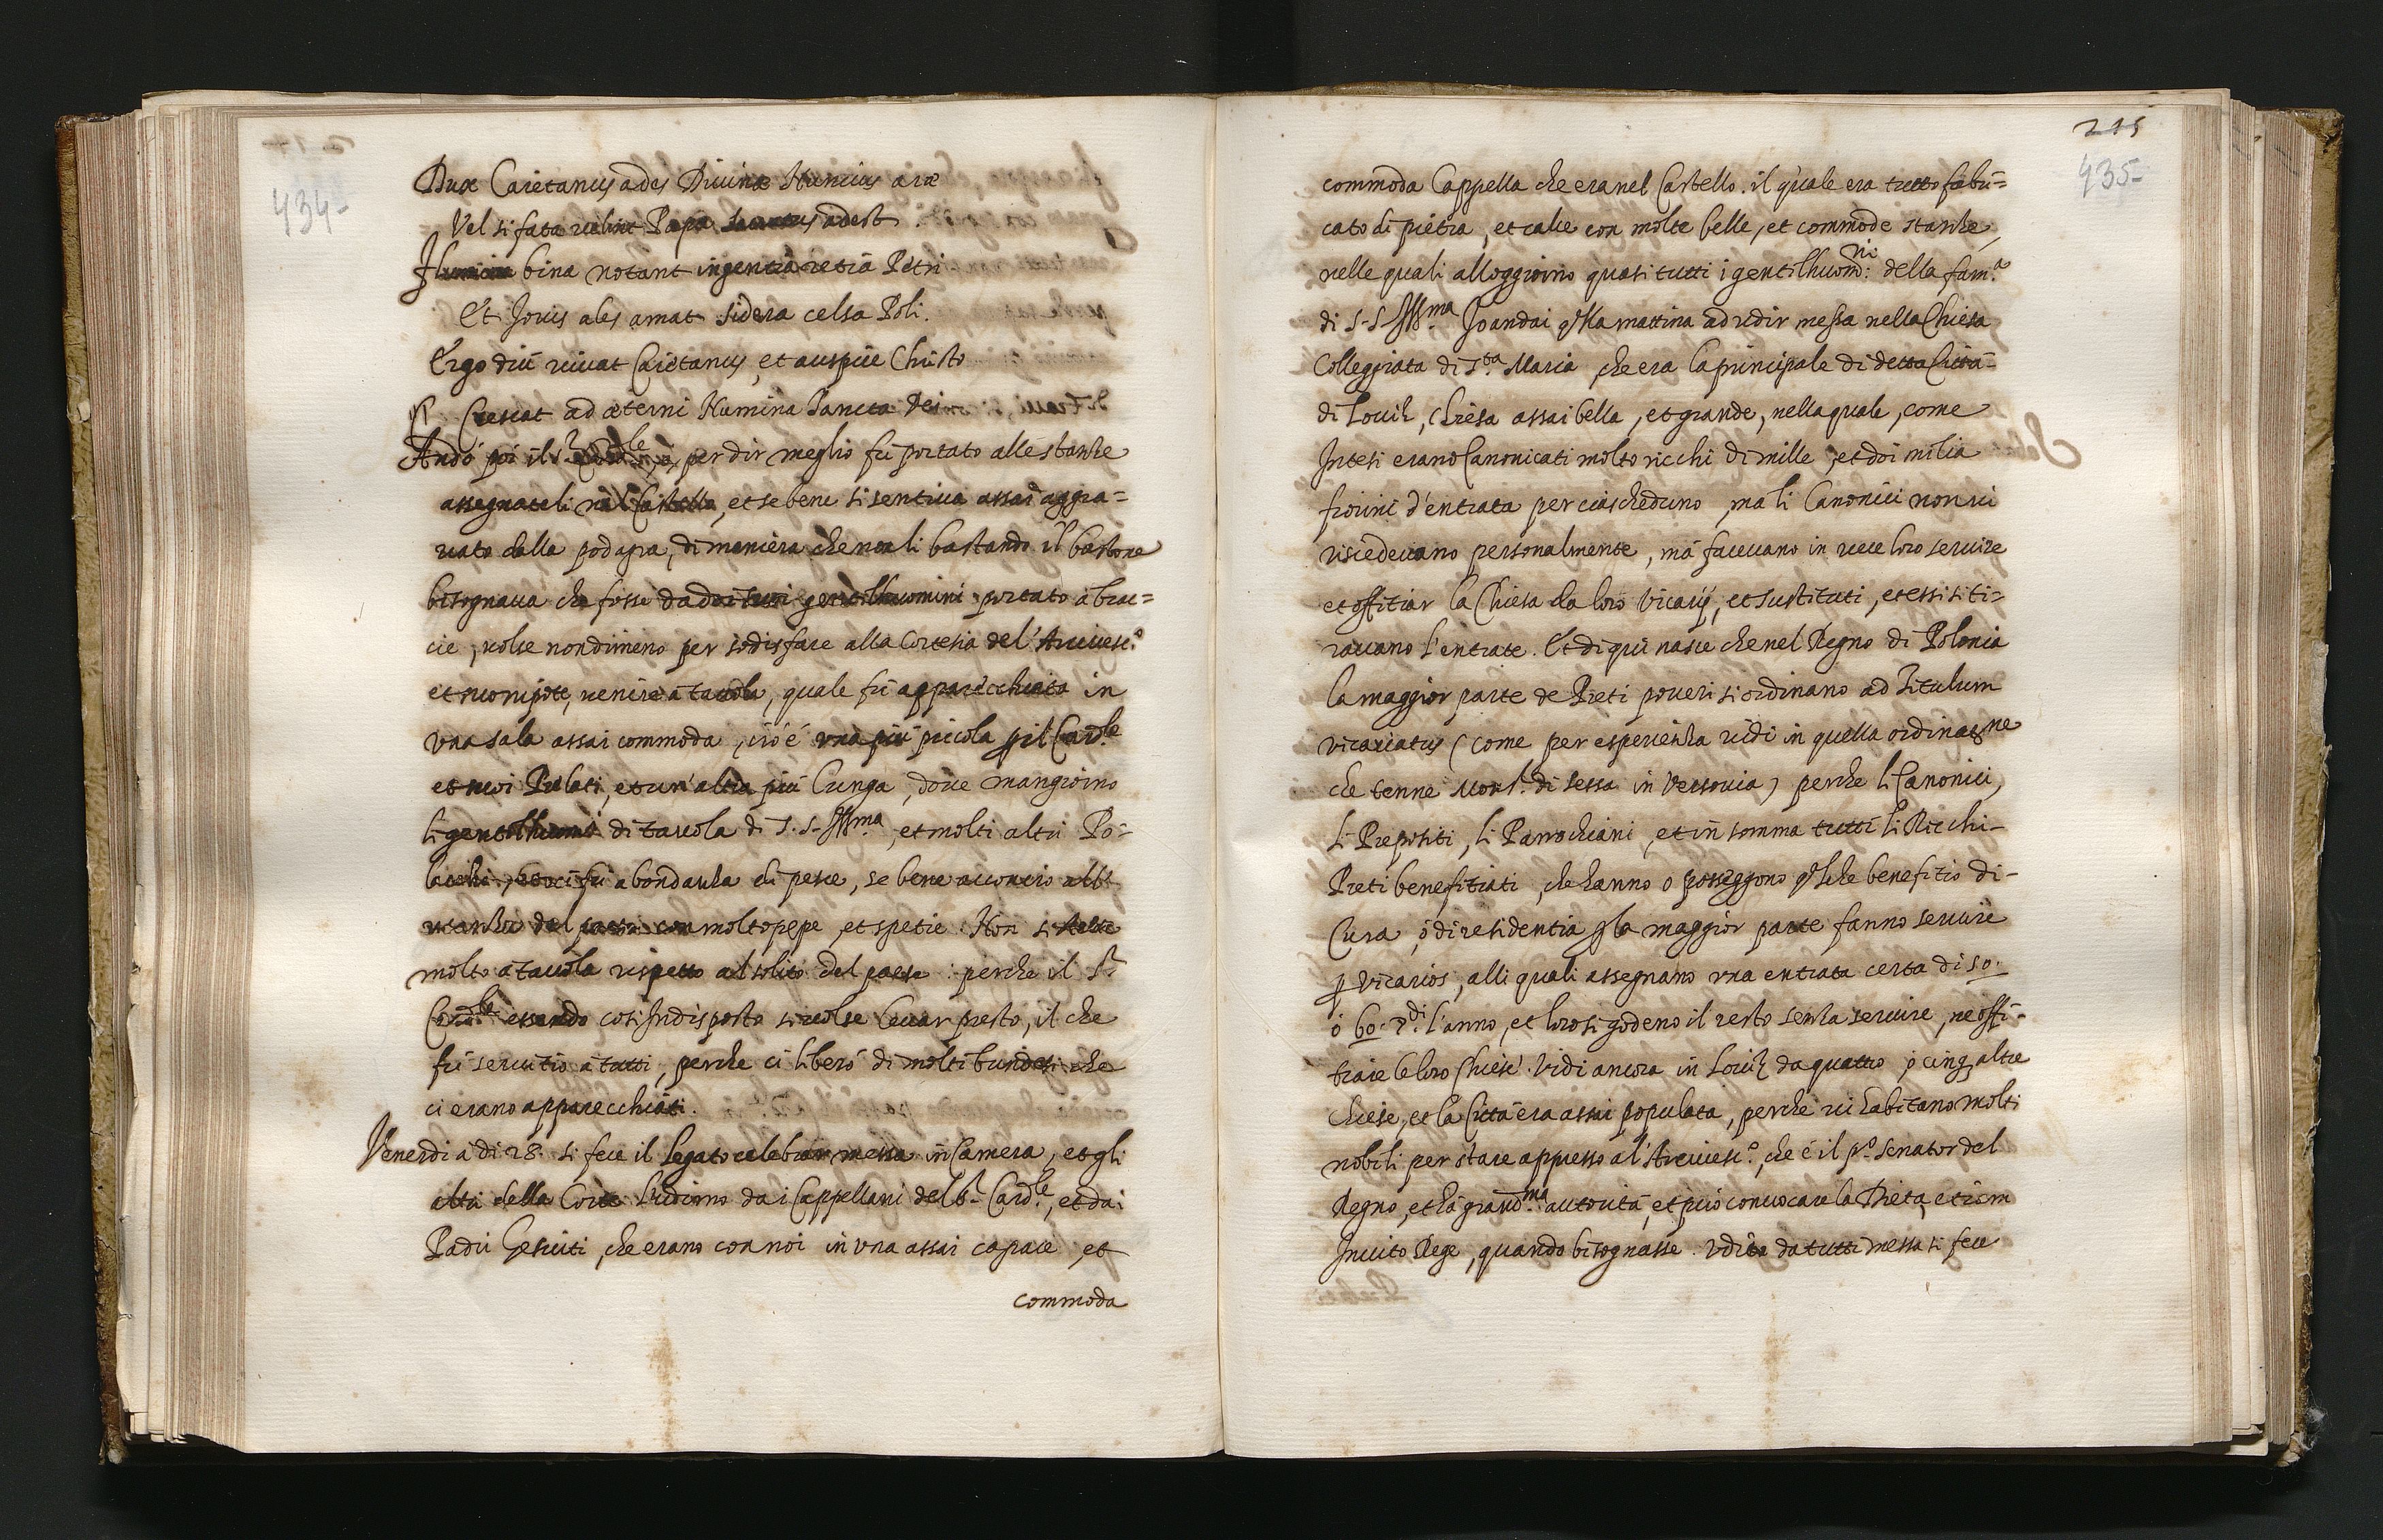 434
Dux Caietanus ades Diuinæ Nuncius aræ
Vel si fata uelint Papa adest.
Flumina bina notant ingentia retia Petri
Et Jouis ales amat sidera celsa Poli.
Ergo diu uiuat Caietanus, et auspice Christo
Crescat ad æterni Numina Sancta Dei
Andò poi il S.r Card.le ò, per dir meglio fù portato alle stanze
assegnateli nel Castello, et se bene si sentiua assai aggra=
uato dalla podagra, di maniera che non li bastando il bastone
bisognaua che fosse da doi suoi gentilhuomini portato à brac=
cie, uolse nondimeno per sodisfare alla Cortesia del'Arciuesc.o
et suo nipote, uenire à tauola, quale fù apparecchiata in
vna sala assai commoda, ciò è vna più piccola p il Card.le
et noi Prelati, et un'altra più lunga, doue mangiorno
li gentilhuomi di tauola di S.S. Ill.ma, et molti altri Po=
lacchi, et ui fù abondanza di pesce, se bene acconcio all'
usanza del paese con molto pepe, et spetie. Non si stette
molto à tauola rispetto al solito del paese: perche il S.r
Card.le essendo cosi Indisposto si uolse leuar presto, il che
fù seruitio à tutti, perche ci liberò di molti brindesi che
ci erano apparecchiati.
Venerdi à di 28. si fece il Legato celebrar messa in Camera, et gli
altri della Corte l'udirno da i Cappellani del S.r Card.le, et da i
Padri Gesuiti, che erano con noi in vna assai capace, et
commoda
215
435
commoda Cappella che era nel Castello. il quale era tutto fabri=
cato di pietra, et calce con molte belle, et commode stanze,
nelle quali alloggiorno quasi tutti i gentilhuom:ni della fam.a
di S.S. Ill.ma Io andai q.lla mattina ad udir messa nella Chiesa
Colleggiata di S.ta Maria, che era la principale di detta Città
di Louiz, Chiesa assai bella, et grande, nella quale, come
Intesi erano Canonicati molto ricchi di mille, et doi milia
fiorini d'entrata per ciascheduno, ma li Canonici non ui
risiedeuano personalmente, mà faceuano in uece loro seruire
et offitiar la Chiesa da loro Vicarij, et sustituti, et essi si ti=
rauano l'entrate. Et di qui nasce che nel Regno di Polonia
la maggior parte de Preti poueri si ordinano ad Titulum
vicariatus (come per esperienza uidi in quella ordinat.ne
che tenne Mons.r di Sessa in Versouia) perche li Canonici,
li Prepositi, li Parrochiani, et in somma tutti li Ricchi
Preti benefitiati, che hanno o posseggono q.lche benefitio di
Cura, ò di residentia p la maggior parte fanno seruire
p Vicarios, alli quali assegnano vna entrata certa di 50.
ò 60. l'anno, et loro si godeno il resto senza seruire, ne offi=
tiare le loro Chiese. Vidi ancora in Louiz da quattro ò cinq altre
Chiese, et la Città era assai populata, perche ui habitano molti
nobili per stare appresso al'Arciuesc.o, che è il p.o Senator del
Regno, et hà grand.ma autorità, et può conuocare la Dieta, etiam
Inuito Rege, quando bisognasse. Vdita da tutti messa si fece